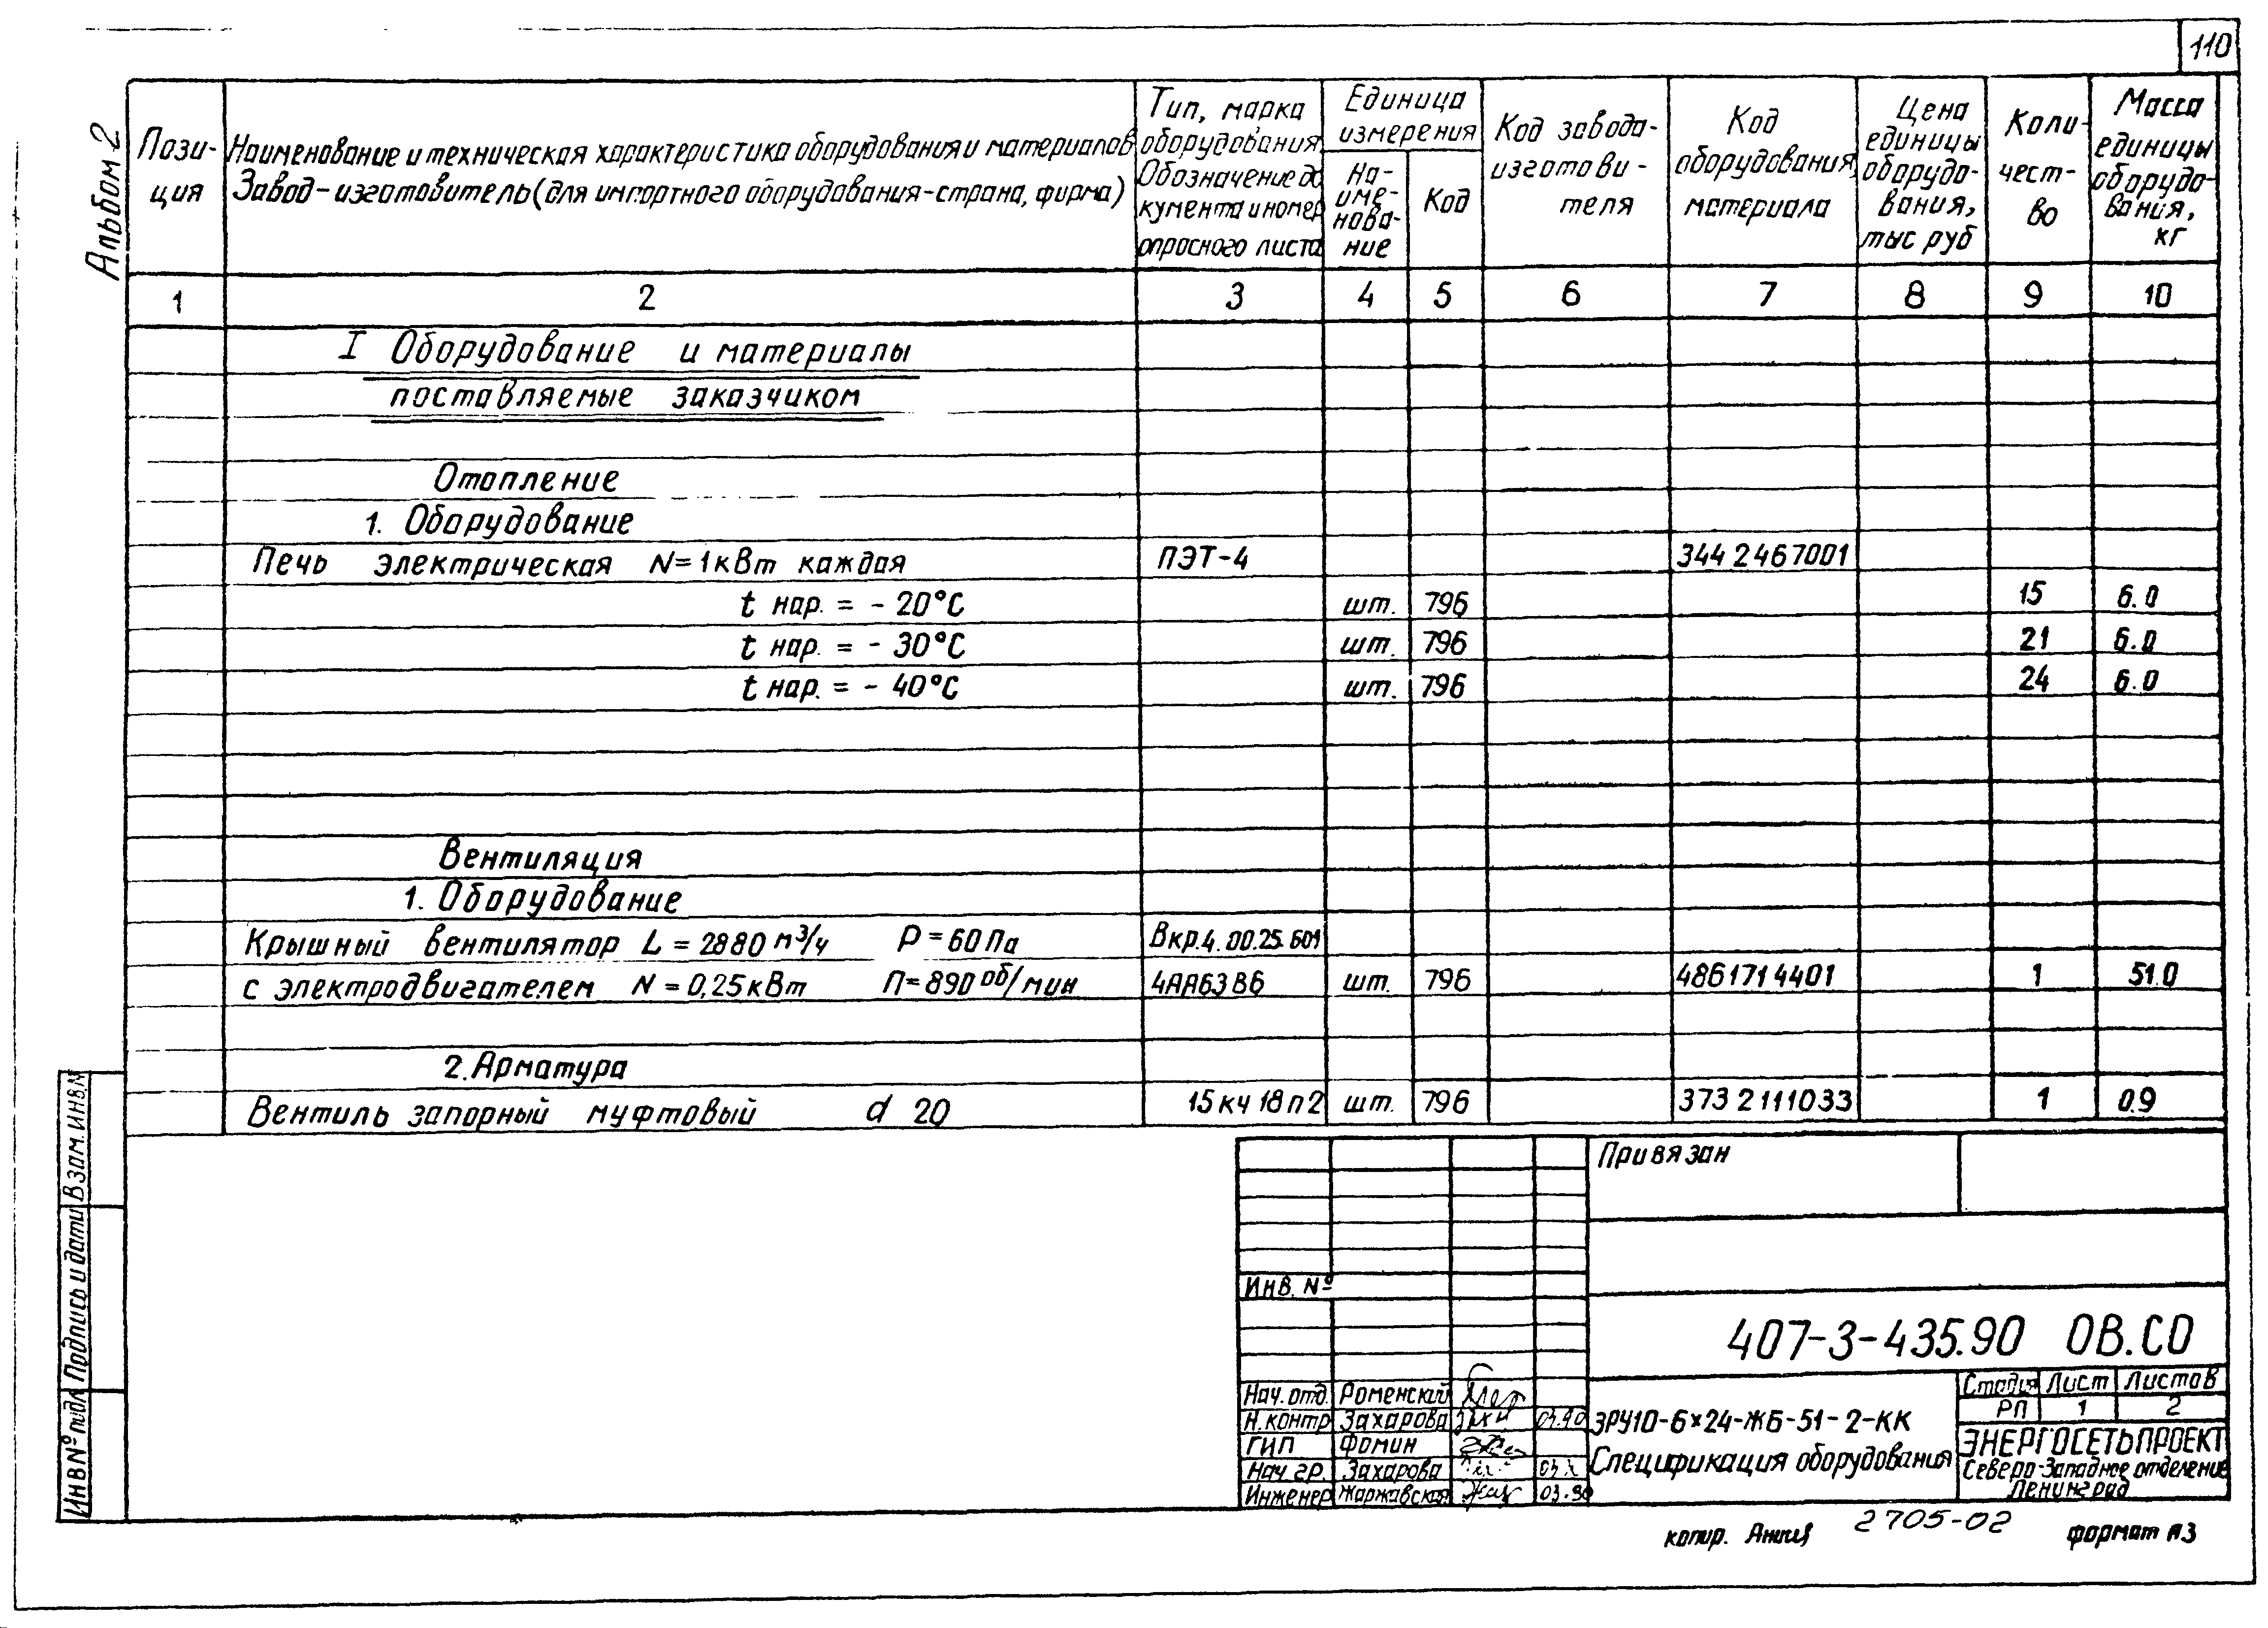 110
Альбом 2
Пози-
ция
Наименование и техническая характеристика оборудования и материалов
Завод-изготовитель (для импортного оборудования-страна, фирма)
Тип, марка
оборудования
Обозначение до
кумента и номер
опросного листа
Единица
измерения
На-
име-
нова-
ние
Код
Код завода-
изготови-
теля
Код
оборудования,
материала
Цена
единицы
оборудо-
вания,
тыс руб
Коли-
чест-
во
Масса
единицы
оборудо-
вания,
кг
1 2 3 4 5 6 7 8 9 10
I Оборудование и материалы
поставляемые заказчиком
Отопление
1. Оборудование
Печь электрическая N=1кВт каждая ПЭТ-4 344 2467001
t нар. = - 20°С шт. 796 15 6.0
t нар. = - 30°С шт. 796 21 6.0
t нар. = - 40°С шт. 796 24 6.0
Вентиляция
1. Оборудование
Крышный вентилятор L = 2880 м³/ч P = 60 Па Вкр.4.00.25.601
с электродвигателем N = 0,25 кВт П=890 об/мин 4АА63В6 шт. 796 4861714401 1 51.0
2. Арматура
Вентиль запорный муфтовый d 20 15 кч 18 п2 шт. 796 373 2111033 1 0.9
Взам. инв.№
Подпись и дата
Инв № подл
Привязан
Инв. №
407-3-435.90 ОВ.СО
Нач. отд. Роменский
Н. контр Захарова 03.90
ГИП Фомин
Нач гр. Захарова
Инженер Жаржавская 03.90
ЗРУ10-6×24-ЖБ-51-2-КК
Спецификация оборудования
Стадия Лист Листов
РП 1 2
ЭНЕРГОСЕТЬПРОЕКТ
Северо-Западное отделение
Ленинград
копир. 2705-02 формат А3